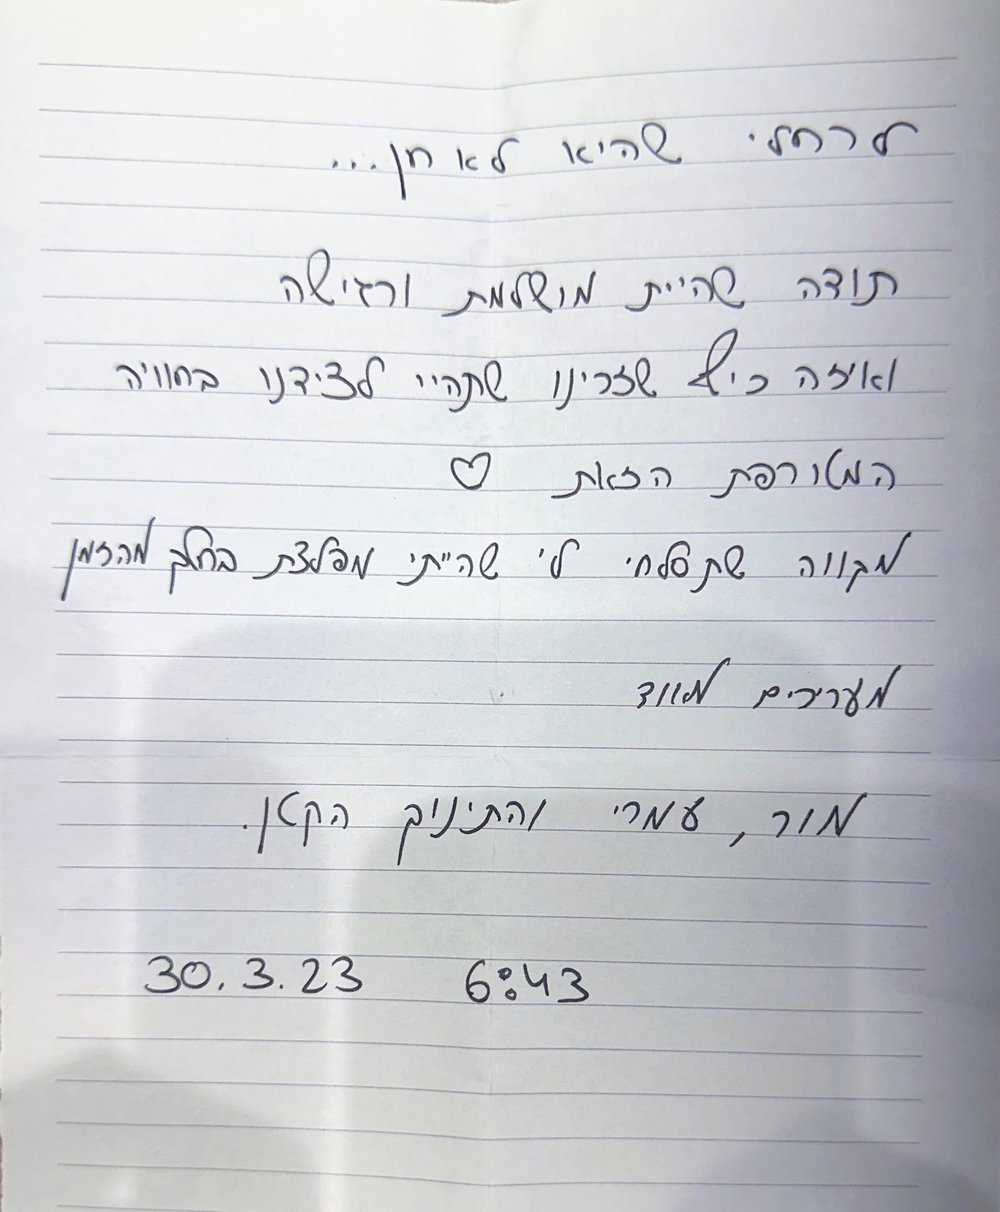 לרחלי שהיא לא חן...
תודה שהיית מושלמת ורגישה
ואיזה כיף שזכינו שתהיי לצידנו בחוויה
המטורפת הזאת ♡
מקווה שתסלחי לי שהייתי מפלצת בחלק מהזמן
מעריכים מאוד
מור, עמרי והתינוק הקטן.
30.3.23 6:43